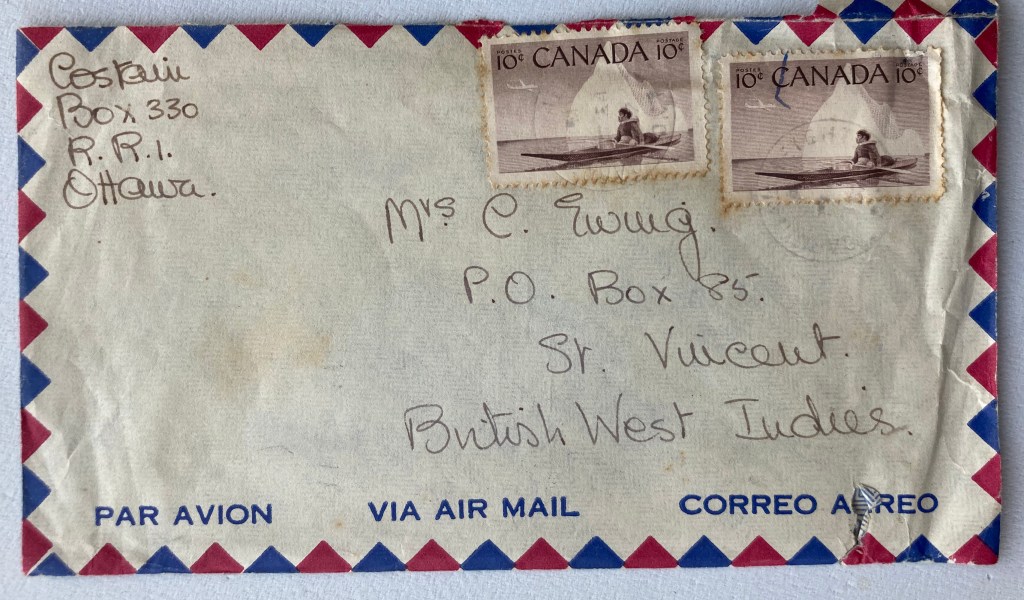 Costain
Box 330
R.R.1.
Ottawa.
POSTES POSTAGE
10¢ CANADA 10¢
POSTES POSTAGE
10¢ CANADA 10¢
Mrs C. Ewing.
P.O. Box 85.
St. Vincent.
British West Indies.
PAR AVION VIA AIR MAIL CORREO AEREO